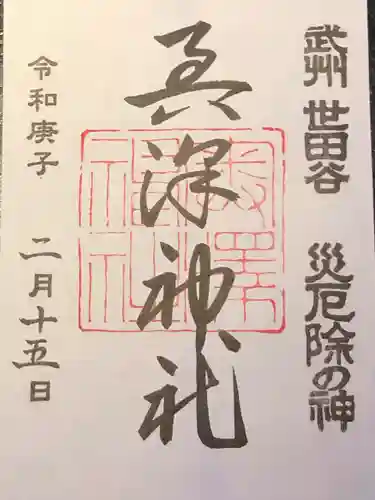 武州 世田谷 災厄除の神
奥澤神社
奥澤
神社
令和庚子 二月十五日